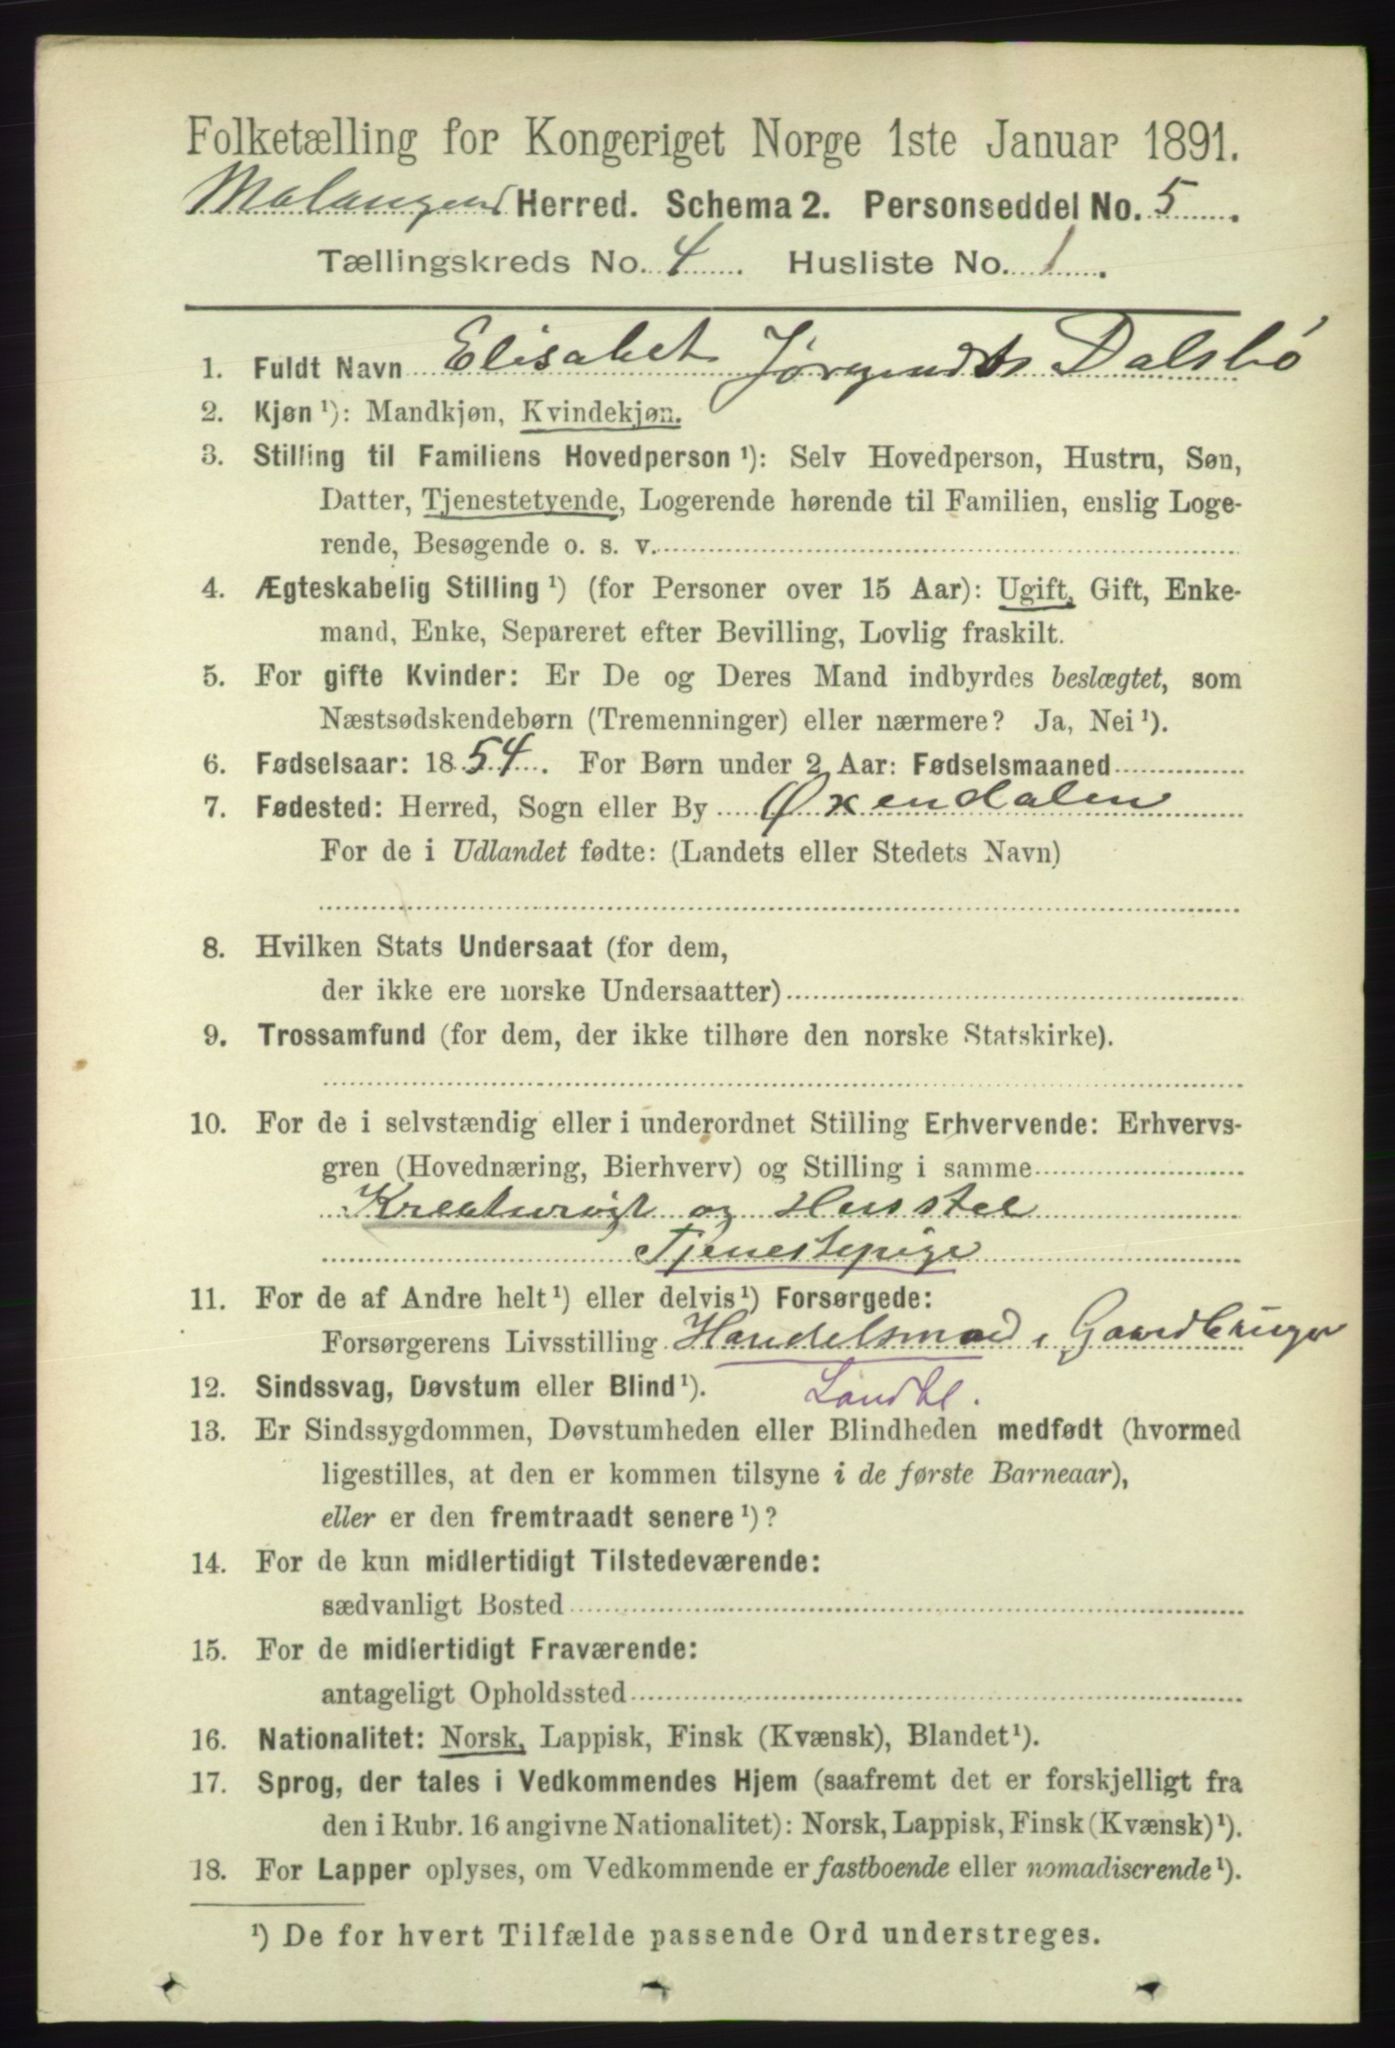 Folketælling for Kongeriget Norge 1ste Januar 1891.
Malangens Herred. Schema 2. Personseddel No. 5.
Tællingskreds No. 4. Husliste No. 1.
1. Fuldt Navn Elisabet Jørgensdt Dalsbø
2. Kjøn ¹): Mandkjøn, Kvindekjøn.
3. Stilling til Familiens Hovedperson ¹): Selv Hovedperson, Hustru, Søn,
Datter, Tjenestetyende, Logerende hørende til Familien, enslig Loge-
rende, Besøgende o. s. v.
4. Ægteskabelig Stilling ¹) (for Personer over 15 Aar): Ugift, Gift, Enke-
mand, Enke, Separeret efter Bevilling, Lovlig fraskilt.
5. For gifte Kvinder: Er De og Deres Mand indbyrdes beslægtet, som
Næstsødskendebørn (Tremenninger) eller nærmere? Ja, Nei ¹).
6. Fødselsaar: 1854. For Børn under 2 Aar: Fødselsmaaned
7. Fødested: Herred, Sogn eller By Øxendalen
For de i Udlandet fødte: (Landets eller Stedets Navn)
8. Hvilken Stats Undersaat (for dem,
der ikke ere norske Undersaatter)
9. Trossamfund (for dem, der ikke tilhøre den norske Statskirke).
10. For de i selvstændig eller i underordnet Stilling Erhvervende: Erhvervs-
gren (Hovednæring, Bierhverv) og Stilling i samme
Kreaturrøgt og Husstel
Tjenestepige
11. For de af Andre helt ¹) eller delvis ¹) Forsørgede:
Forsørgerens Livsstilling Handelsmand, Gaardbruger
12. Sindssvag, Døvstum eller Blind ¹). Landh.
13. Er Sindssygdommen, Døvstumheden eller Blindheden medfødt (hvormed
ligestilles, at den er kommen tilsyne i de første Barneaar),
eller er den fremtraadt senere ¹)?
14. For de kun midlertidigt Tilstedeværende:
sædvanligt Bosted
15. For de midlertidigt Fraværende:
antageligt Opholdssted
16. Nationalitet: Norsk, Lappisk, Finsk (Kvænsk), Blandet ¹).
17. Sprog, der tales i Vedkommendes Hjem (saafremt det er forskjelligt fra
den i Rubr. 16 angivne Nationalitet): Norsk, Lappisk, Finsk (Kvænsk) ¹).
18. For Lapper oplyses, om Vedkommende er fastboende eller nomadiserende ¹).
¹) De for hvert Tilfælde passende Ord understreges.